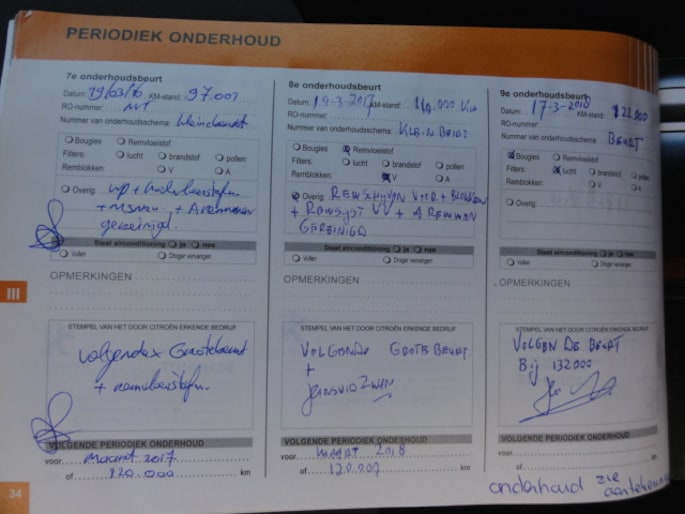 PERIODIEK ONDERHOUD
7e onderhoudsbeurt
Datum: 29/03/16 KM-stand: 97.001
RO-nummer: NVT
Nummer van onderhoudsschema: kleine beurt
Bougies Remvloeistof
Filters: lucht brandstof pollen
Remblokken: V A
Overig:
+ A remmen
gereinigd.
Staat airconditioning ja nee
Vullen Droger vervangen
OPMERKINGEN
STEMPEL VAN HET DOOR CITROËN ERKENDE BEDRIJF
volgende x Grote beurt
+ remvloeistof
VOLGENDE PERIODIEK ONDERHOUD
voor maart 2017
of 120.000 km
8e onderhoudsbeurt
Datum: 19-3-2017 KM-stand: 110.000 KM
RO-nummer:
Nummer van onderhoudsschema: KLEIN BEURT
Bougies Remvloeistof
Filters: lucht brandstof pollen
Remblokken: V A
Overig: REMSCHYVEN VOOR + BLOKKEN
+ A REMMEN
GEREINIGD
Staat airconditioning ja nee
Vullen Droger vervangen
OPMERKINGEN
STEMPEL VAN HET DOOR CITROËN ERKENDE BEDRIJF
VOLGENDE GROTE BEURT
+
VOLGENDE PERIODIEK ONDERHOUD
voor MAART 2018
of 120.000 km
9e onderhoudsbeurt
Datum: 17-3-2018 KM-stand: 122.000
RO-nummer:
Nummer van onderhoudsschema: BEURT
Bougies Remvloeistof
Filters: lucht brandstof pollen
Remblokken: V A
Overig:
Staat airconditioning ja nee
Vullen Droger vervangen
OPMERKINGEN
STEMPEL VAN HET DOOR CITROËN ERKENDE BEDRIJF
VOLGENDE BEURT
Bij 132000
VOLGENDE PERIODIEK ONDERHOUD
voor
of km
onderhoud zie
III
34